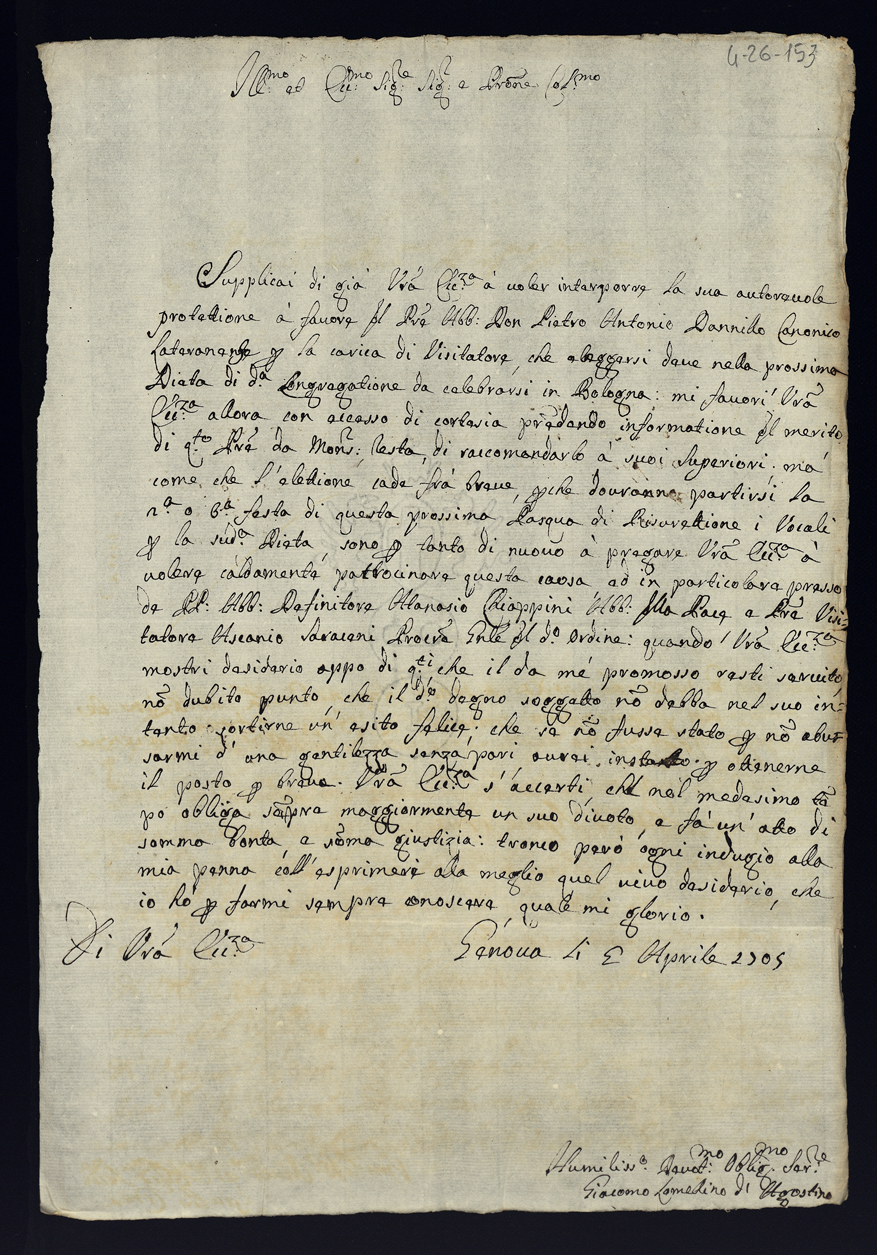 4-26-153
Ill.mo ed Ecc.mo Sig.re Sig.r e Prone Col.mo
Supplicai di già Vrã Ecc.za à voler interporre la sua autorevole
protettione à favore del Prẽ Abb: Don Pietro Antonio Dannillo Canonico
Lateranense p la carica di Visitatore, che eleggersi deve nella prossima
Dieta di d.a Congregatione da celebrarsi in Bologna: mi favorì Vrã
Ecc.za allora con eccesso di cortesia prẽdendo informatione del merito
di q.to Prẽ da Mons.r Testa, di raccomandarlo à suoi Superiori. mà
come che l'elettione cade frà breve, pche dovranno partirsi la
2.a o 6.a festa di questa prossima Pasqua di Risurettione i Vocali
p la sud.a Dieta, sono p tanto di nuovo à pregare Vrã Ecc.za à
volere caldamente patrocinare questa causa ed in particolare presso
de PP: Abb: Definitore Atanasio Chiappini Abb: della Pace e Prẽ Visi-
tatore Ascanio Saraceni Procrẽ Gnle del d.o Ordine: quando Vrã Ecc.za
mostri desiderio appo di q.ti che il da me promosso resti servito,
nõ dubito punto, che il d.o degno soggetto nõ debba nel suo in-
tento sortirne un' esito felice. che se nõ fusse stato p nõ abu-
sarmi d' una gentilezza senza pari avrei instato p ottenerne
il posto p breve. Vrã Ecc.za s'accerti, che nel medesimo tẽ
po obliga sẽpre maggiormente un suo divoto, e fà un' atto di
somma bontà, e sõma giustizia: tronco però ogni indugio alla
mia penna coll' esprimere alla meglio quel vivo desiderio, che
io hò p farmi sempre conoscere, quale mi glorio.
Di Vrã Ecc.za Genova li Aprile 1705
Humiliss.o Devot.mo Oblig.mo Ser.re
Giacomo Lomellino di Agostino